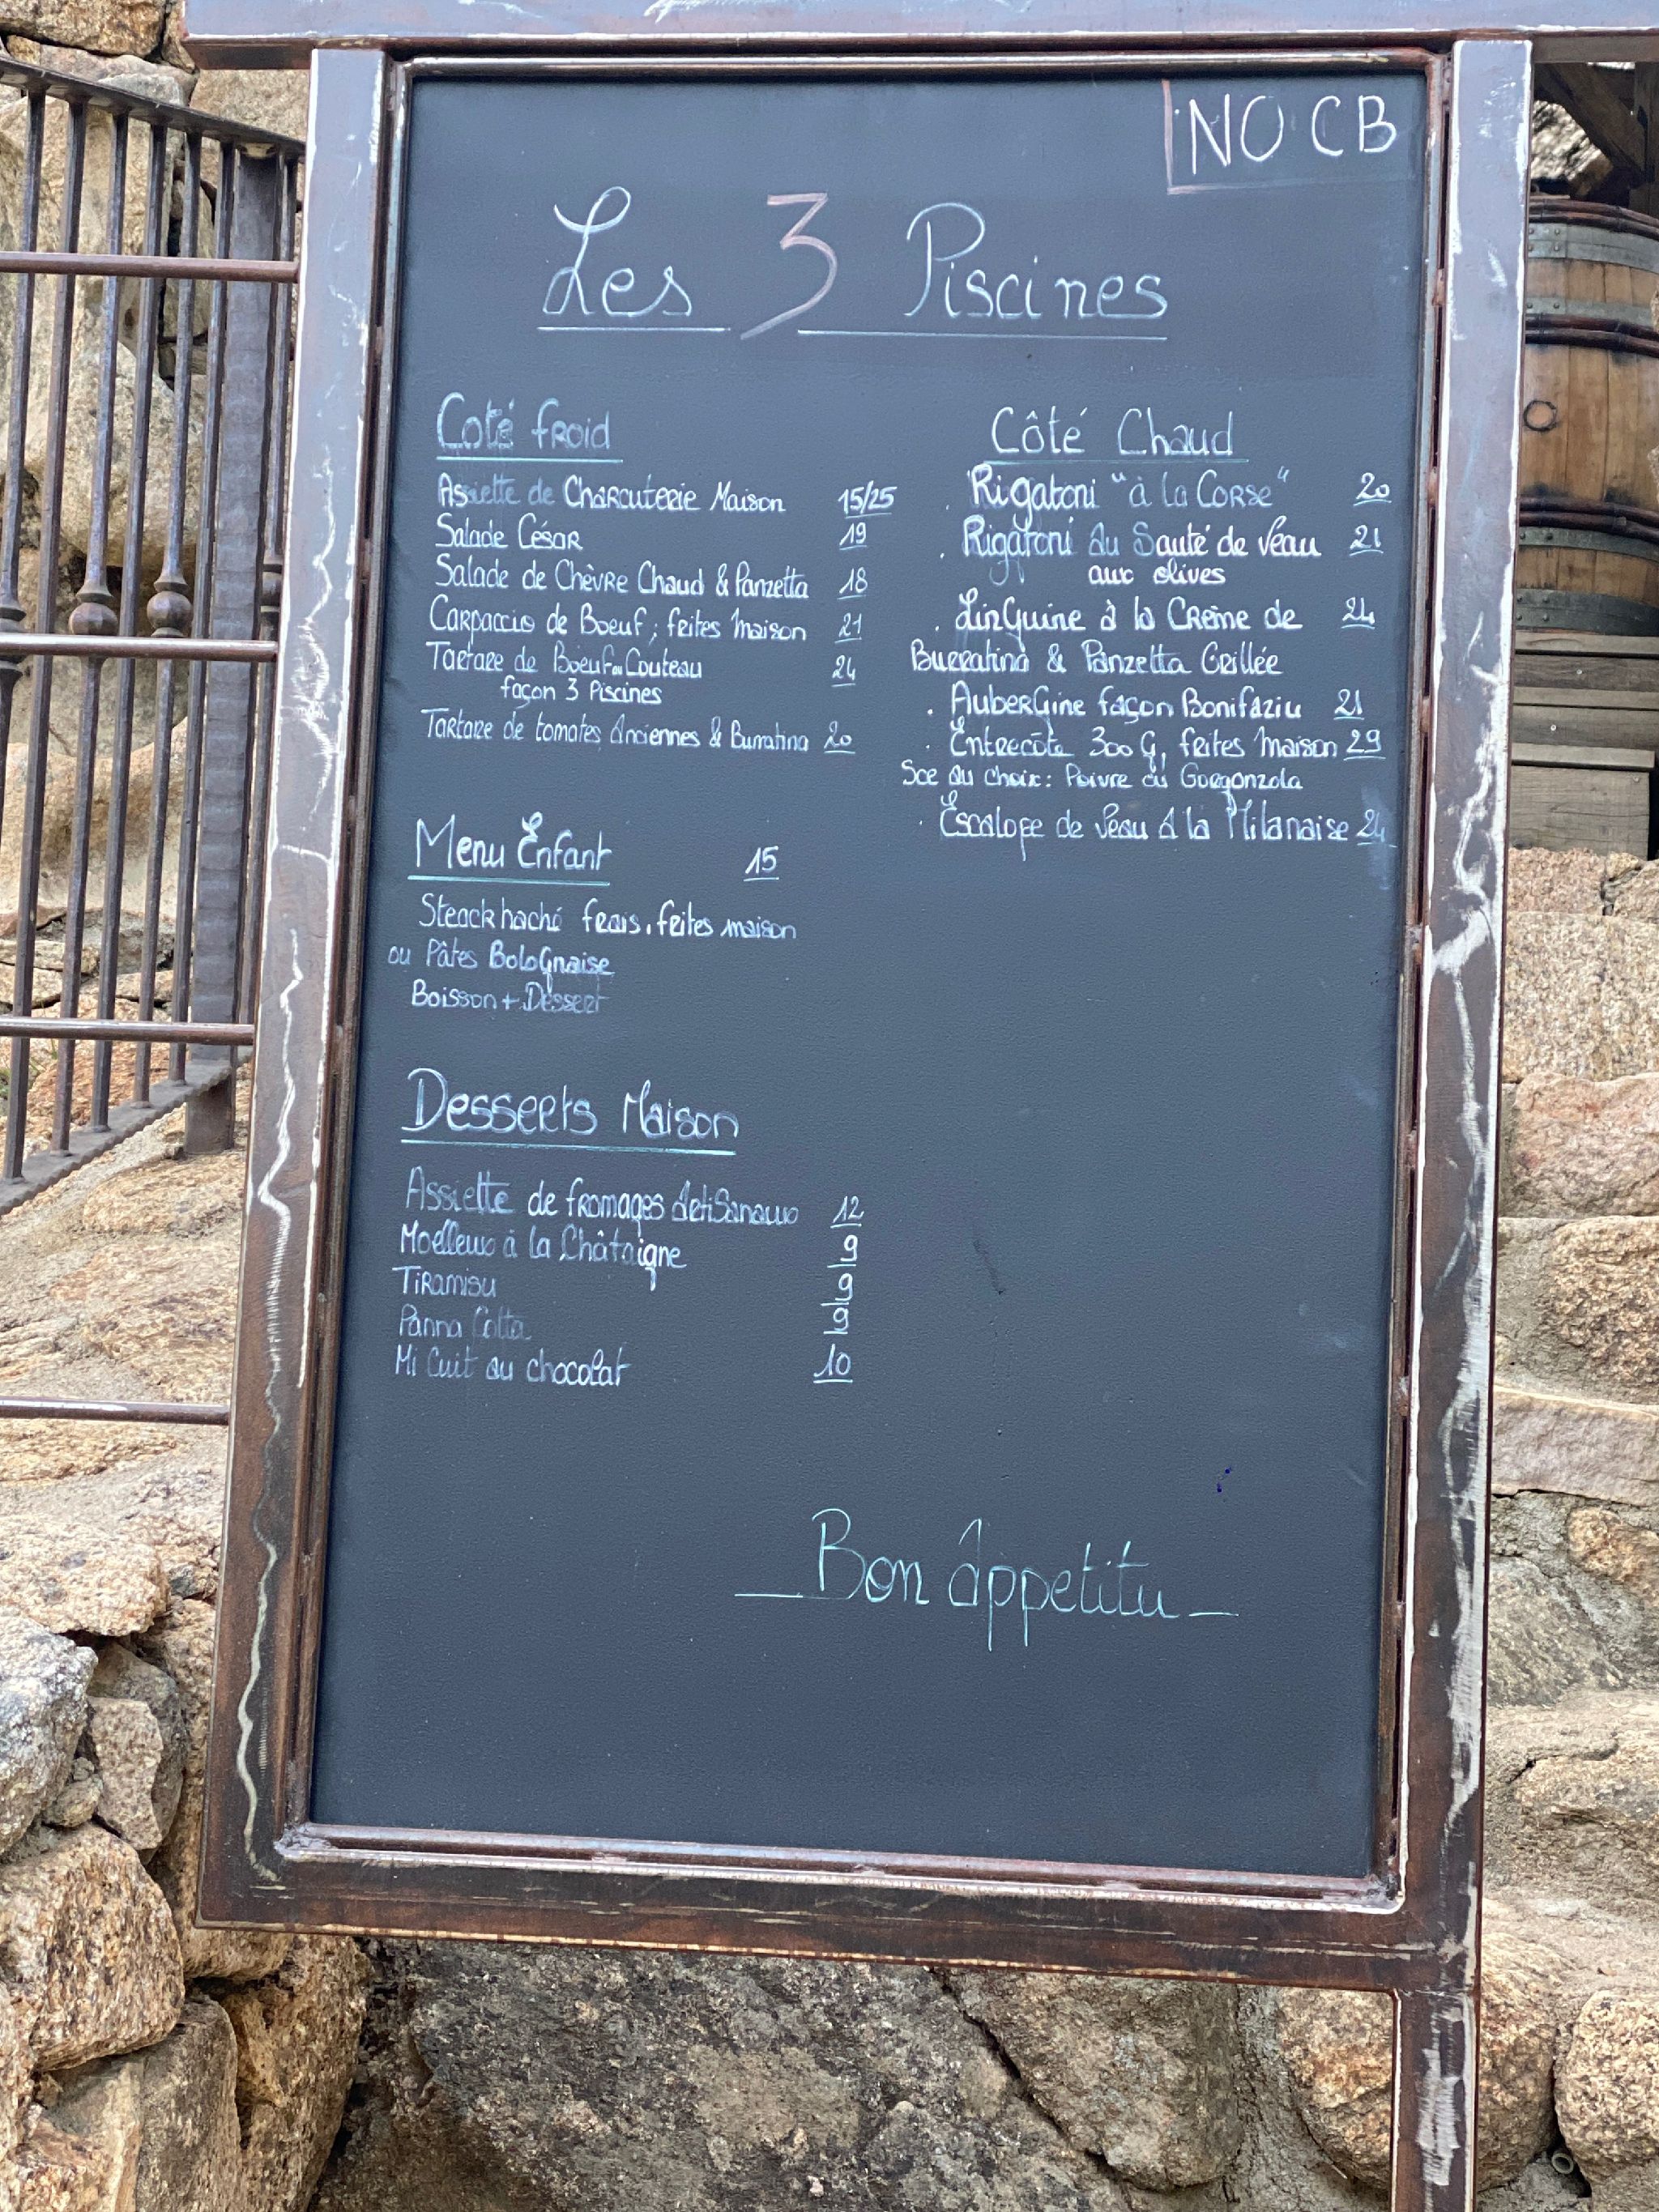 NO CB
Les 3 Piscines
Coté froid
Assiette de Charcuterie Maison 15/25
Salade César 19
Salade de Chèvre Chaud & Panzetta 18
Carpaccio de Boeuf, frites Maison 21
Tartare de Boeuf au Couteau 24
façon 3 Piscines
Tartare de tomates Anciennes & Burratina 20
Menu Enfant 15
Steack haché frais, frites maison
ou Pâtes Bolognaise
Boisson + Dessert
Desserts Maison
Assiette de fromages Artisanaux 12
Moëlleux à la Châtaigne 9
Tiramisu 9
Panna Cotta 9
Mi Cuit au chocolat 10
Côté Chaud
. Rigatoni "à la Corse" 20
. Rigatoni au Sauté de Veau 21
aux olives
. Linguine à la Crème de 24
Burratina & Panzetta Grillée
. Aubergine façon Bonifaziu 21
. Entrecôte 300 G, frites Maison 29
Sce au choix : Poivre ou Gorgonzola
. Escalope de Veau à la Milanaise 24
Bon àppetitu